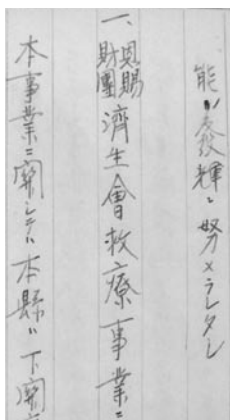 能ハ發輝ニ努メラレタシ
一、恩賜財團濟生會救療事業ニ
本事業ニ関シテハ本縣ハ下関